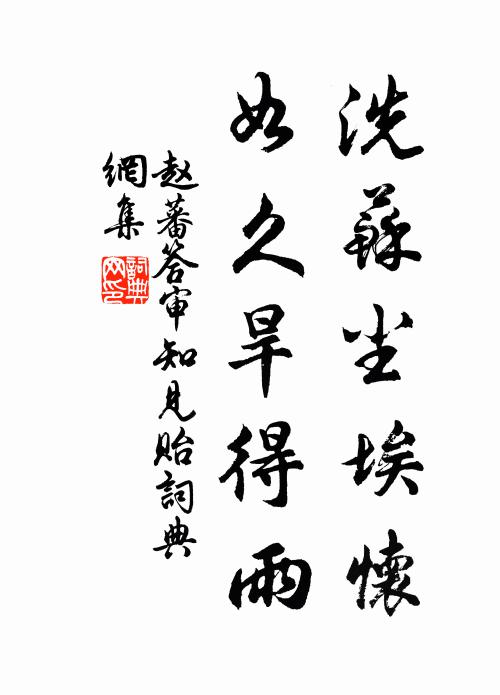 洗蘇尘埃懷
如久旱得雨
赵蕃答审知見貽詞典
網集
詞典
网印